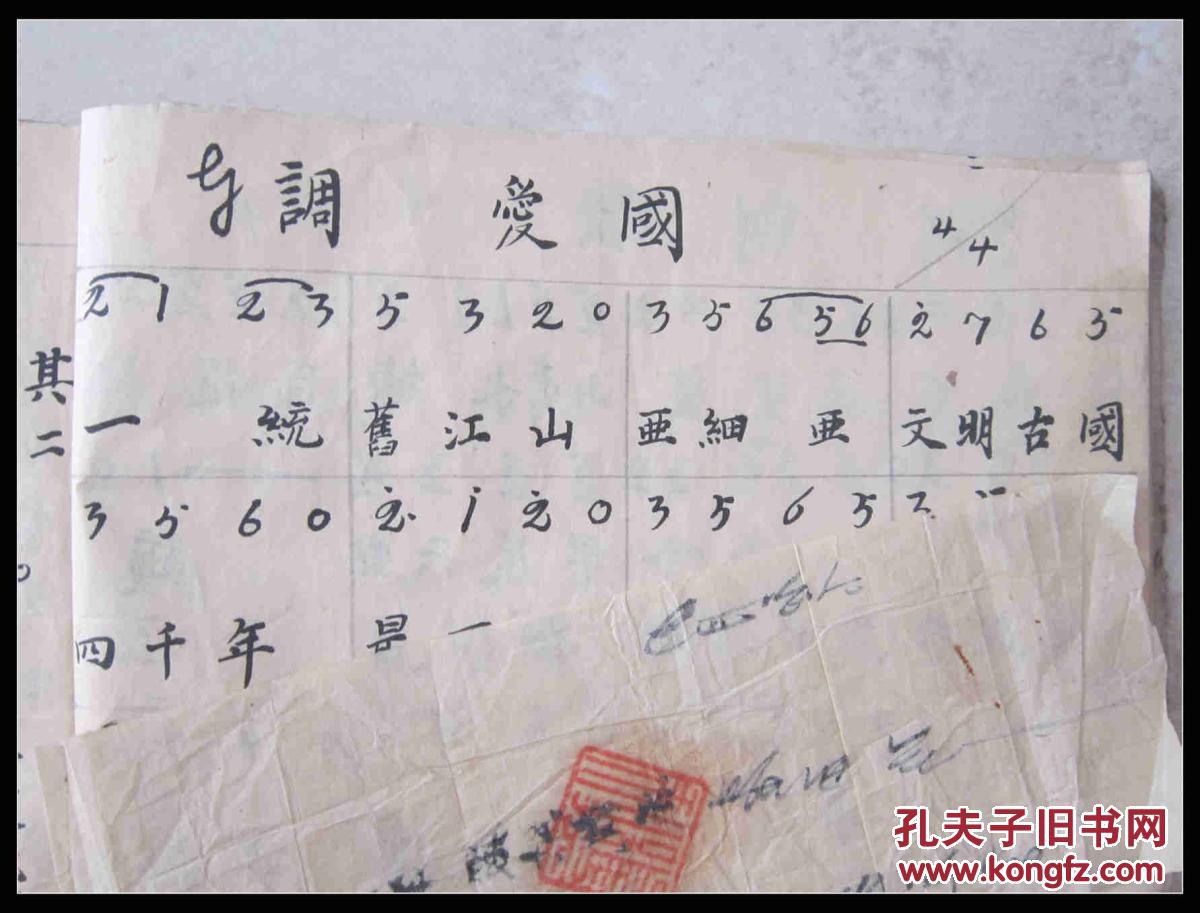 G調 愛國 4/4
2 1 2 3 5 3 2 0 3 5 6 5 6 2 7 6 5
一統舊江山亞細亞文明古國
3 5 6 0 2· 1 2 0 3 5 6 5
四千年是一
其二
孔夫子旧书网
www.kongfz.com